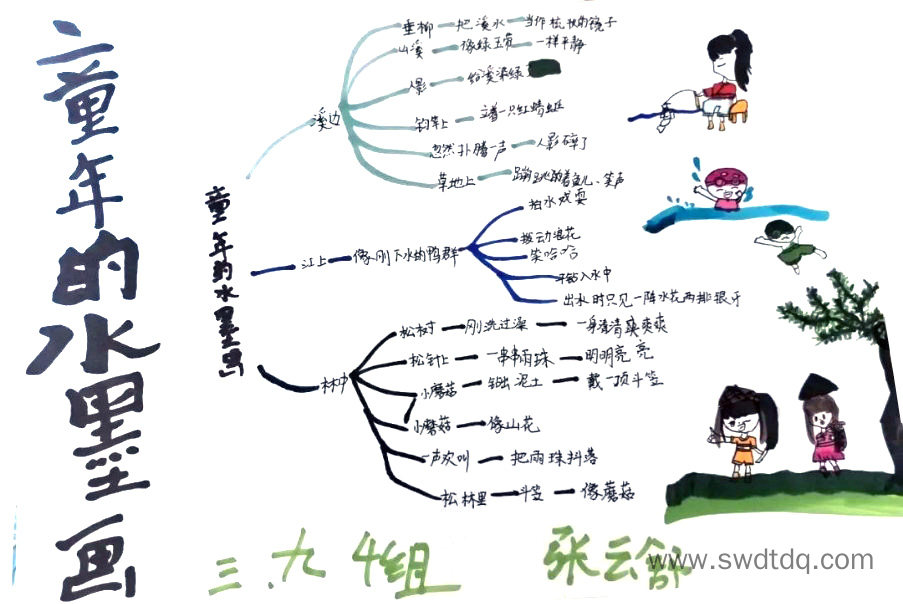 童年的水墨画
童年的水墨画
溪边
垂柳 把溪水 当作梳妆的镜子
山溪 像绿玉带 一样平静
人影 给溪染绿
钓竿上 立着一只红蜻蜓
忽然扑腾一声 人影碎了
草地上 蹦跳的着鱼儿、笑声
江上 像刚下水的鸭群
拍水戏耍
拨动浪花
笑哈哈
钻入水中
出水时只见一阵水花两排银牙
林中
松树 刚洗过澡 一身清清爽爽爽
松针上 一串串雨珠 明明亮亮
小蘑菇 钻出泥土 戴一顶斗笠
小蘑菇 像山花
一声欢叫 把雨珠抖落
松林里 斗笠 像蘑菇
三.九 4组 张云舒
www.swdtdq.com